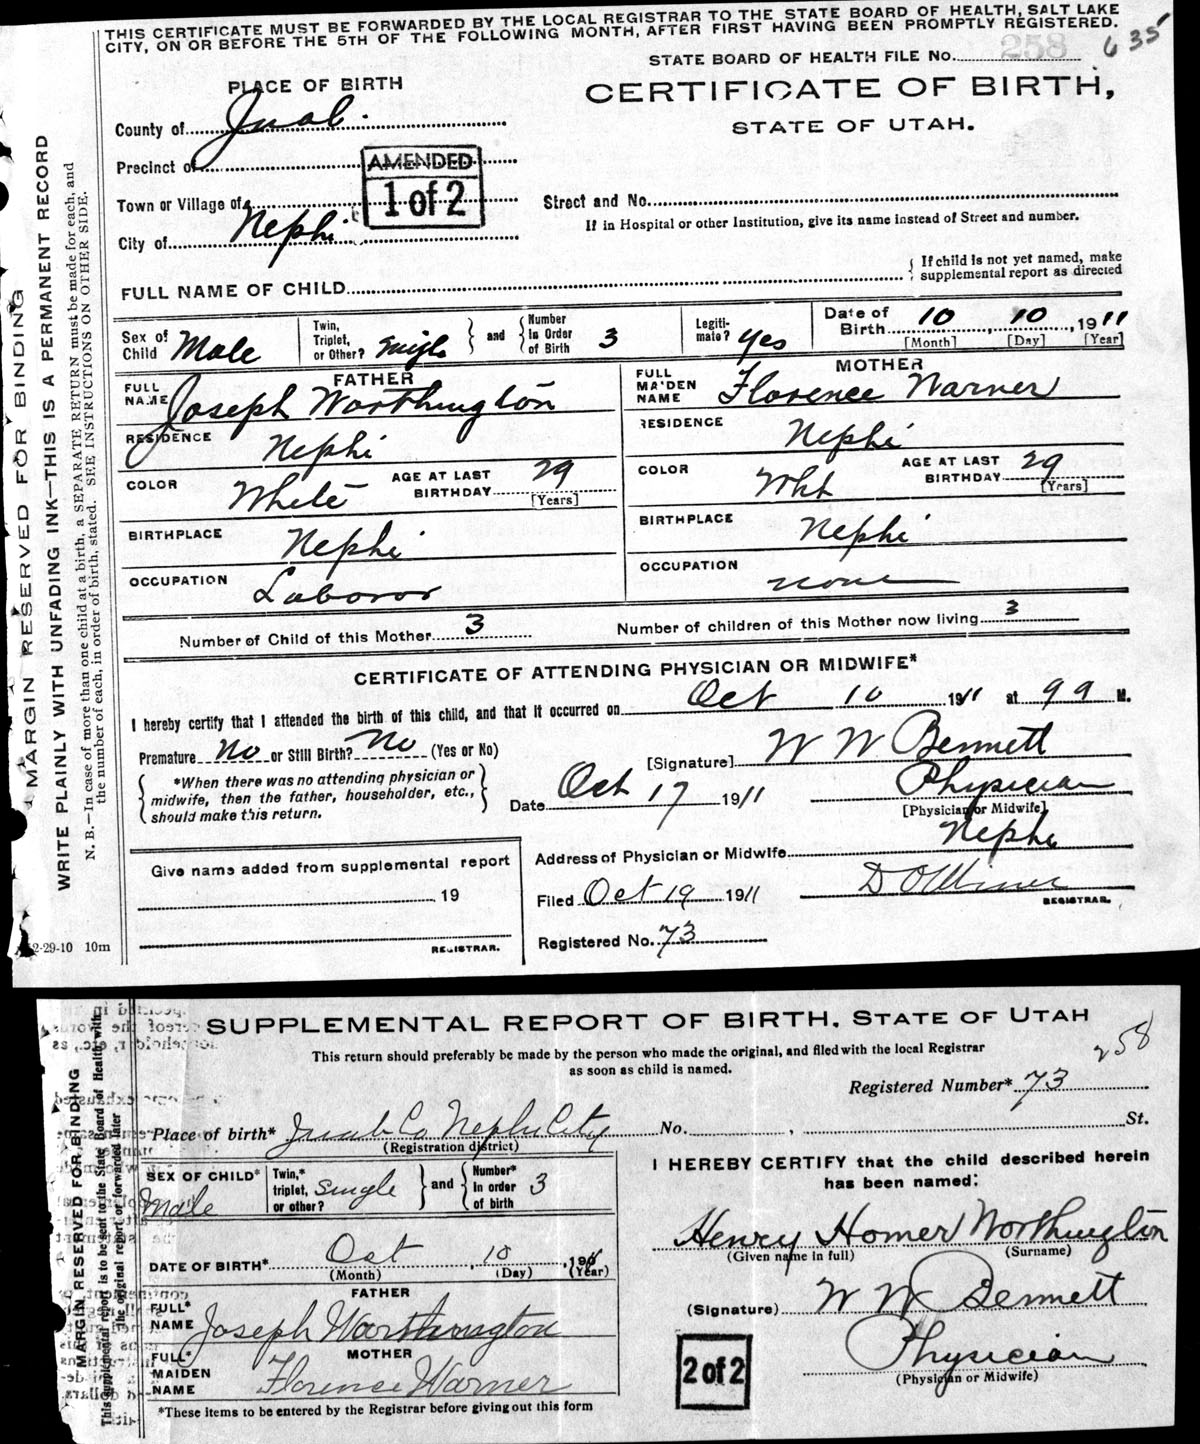 THIS CERTIFICATE MUST BE FORWARDED BY THE LOCAL REGISTRAR TO THE STATE BOARD OF HEALTH, SALT LAKE
CITY, ON OR BEFORE THE 5TH OF THE FOLLOWING MONTH, AFTER FIRST HAVING BEEN PROMPTLY REGISTERED.
STATE BOARD OF HEALTH FILE No. 258 635
PLACE OF BIRTH
CERTIFICATE OF BIRTH,
STATE OF UTAH.
County of Juab.
Precinct of
AMENDED
1 of 2
Town or Village of
Street and No.
If in Hospital or other Institution, give its name instead of Street and number.
City of Nephi
FULL NAME OF CHILD
{ If child is not yet named, make supplemental report as directed
Sex of Child Male
Twin, Triplet, or Other? single } and { Number In Order of Birth 3
Legitimate? Yes
Date of Birth 10, 10, 1911
[Month] [Day] [Year]
FATHER
MOTHER
FULL NAME Joseph Worthington
FULL MAIDEN NAME Florence Warner
RESIDENCE Nephi
RESIDENCE Nephi
COLOR White AGE AT LAST BIRTHDAY 29 [Years]
COLOR Wht AGE AT LAST BIRTHDAY 29 [Years]
BIRTHPLACE Nephi
BIRTHPLACE Nephi
OCCUPATION Laboror
OCCUPATION none
Number of Child of this Mother 3
Number of children of this Mother now living 3
CERTIFICATE OF ATTENDING PHYSICIAN OR MIDWIFE*
I hereby certify that I attended the birth of this child, and that it occurred on Oct 10 1911 at 99 M.
Premature No or Still Birth? No (Yes or No)
[Signature] W W Bennett
{ *When there was no attending physician or midwife, then the father, householder, etc., should make this return. }
Date Oct 17 1911
Physician
[Physician or Midwife]
Address of Physician or Midwife Nephi
Give name added from supplemental report
19
REGISTRAR.
Filed Oct 19 1911
REGISTRAR.
Registered No. 73
2-29-10 10m
MARGIN RESERVED FOR BINDING
WRITE PLAINLY WITH UNFADING INK—THIS IS A PERMANENT RECORD
N. B.—In case of more than one child at a birth, a SEPARATE RETURN must be made for each, and
the number of each, in order of birth, stated. SEE INSTRUCTIONS ON OTHER SIDE.
SUPPLEMENTAL REPORT OF BIRTH, STATE OF UTAH
This return should preferably be made by the person who made the original, and filed with the local Registrar
as soon as child is named.
258
Registered Number* 73
Place of birth* Juab Co Nephi City No. , St.
(Registration district)
SEX OF CHILD* Male
Twin,* triplet, or other? single } and { Number* in order of birth 3
I HEREBY CERTIFY that the child described herein
has been named:
Henry Homer Worthington
(Given name in full) (Surname)
DATE OF BIRTH* Oct, 10, 191
(Month) (Day) (Year)
FATHER
FULL* NAME Joseph Worthington
(Signature) W W Bennett
MOTHER
FULL* MAIDEN NAME Florence Warner
2 of 2
Physician
(Physician or Midwife)
*These items to be entered by the Registrar before giving out this form
MARGIN RESERVED FOR BINDING
This supplemental report is to be sent to the State Board of Health, with
the original report or forwarded later